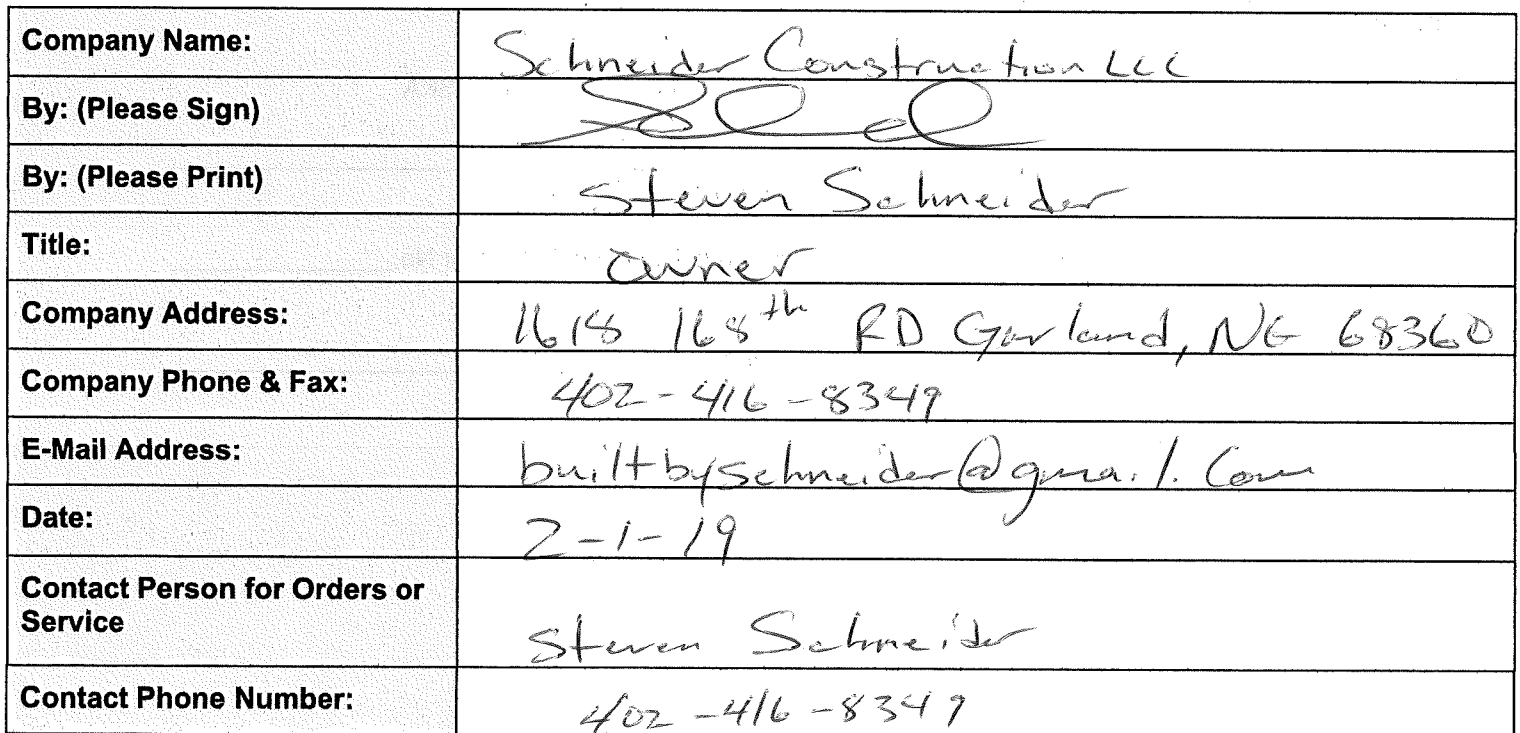 Company Name: Schneider Construction LLC
By: (Please Sign)
By: (Please Print) Steven Schneider
Title: owner
Company Address: 1618 168th RD Garland, NE 68360
Company Phone & Fax: 402-416-8349
E-Mail Address: builtbyschneider@gmail.com
Date: 2-1-19
Contact Person for Orders or
Service Steven Schneider
Contact Phone Number: 402-416-8349